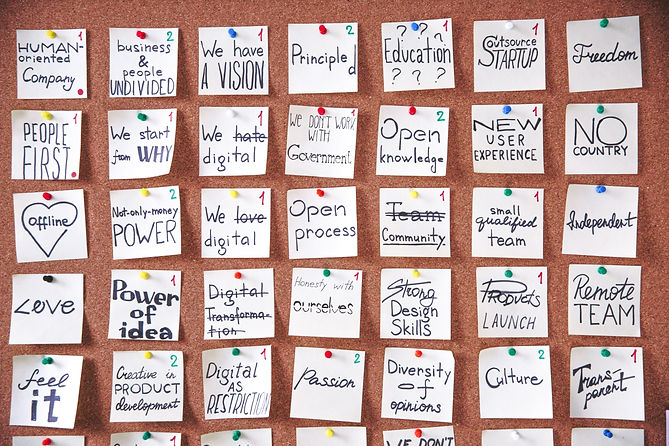 HUMAN-
oriented
Company
1
business
&
people
UNDIVIDED
2
We have
A VISION
1
Principled
2
Education
? ? ?
? ? ?
1
Outsource
STARTUP
1
Freedom
PEOPLE
FIRST.
1
We start
from WHY
1
We hate
digital
1
WE DON'T WORK
WITH
Government.
1
Open
knowledge
2
NEW
USER
EXPERIENCE
1
NO
COUNTRY
offline
Not-only-money
POWER
2
We love
digital
1
Open
process
Team
Community
1
small
qualified
team
1
Independent
Love
Power of
idea
1
Digital
Transforma-
tion
Honesty with
ourselves
1
Strong
Design
Skills
Products
LAUNCH
1
Remote
TEAM
feel
it
Creative in
PRODUCT
development
2
Digital
AS
RESTRICTION
1
Passion
2
Diversity
of
opinions
Culture
2
Trans-
parent
1
2
1
WE DON'T